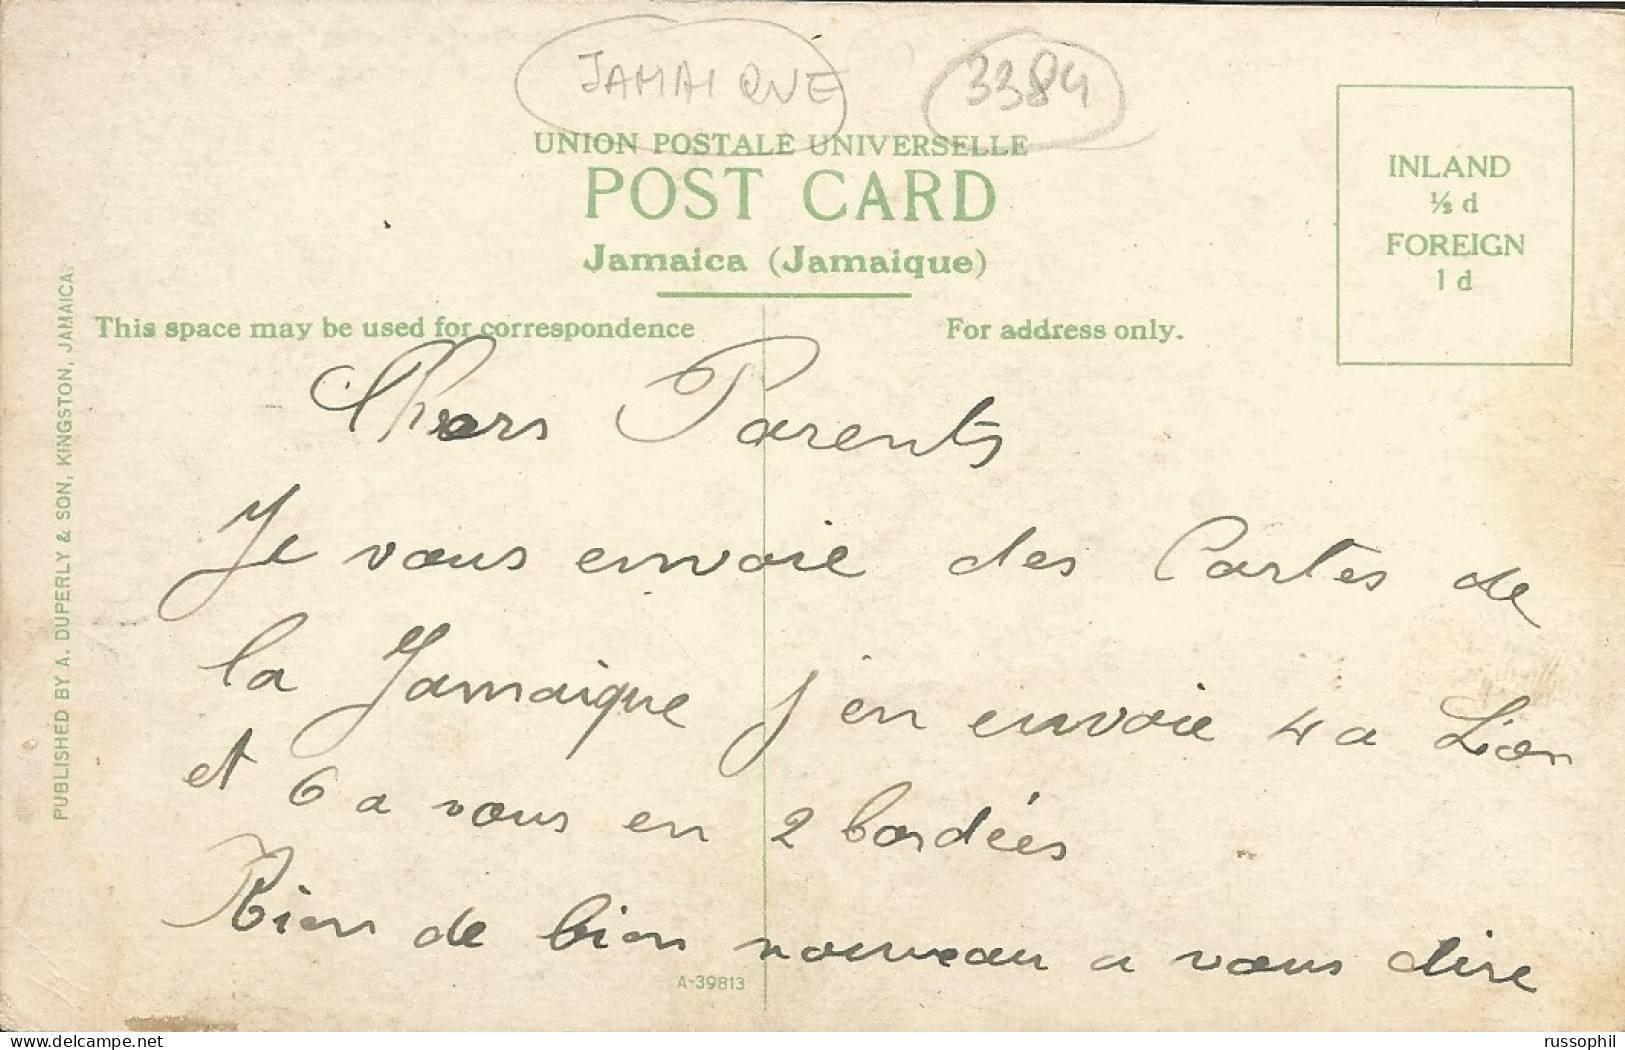 JAMAIQUE 3384
UNION POSTALE UNIVERSELLE
POST CARD
Jamaica (Jamaique)
INLAND
½ d
FOREIGN
1 d
This space may be used for correspondence
For address only.
PUBLISHED BY A. DUPERLY & SON, KINGSTON, JAMAICA.
Chers Parents
Je vous envoie des Cartes de
la Jamaique j en envoie 4 a Lion
et 6 a vous en 2 bordées
Rien de bien nouveau a vous dire
A-39813
delcampe.net
russophil